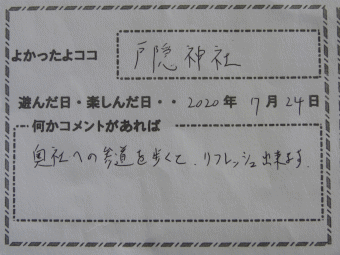 よかったよココ 戸隠神社
遊んだ日・楽しんだ日・・ 2020年 7月24日
何かコメントがあれば
奥社への参道を歩くと、リフレッシュ出来ます。